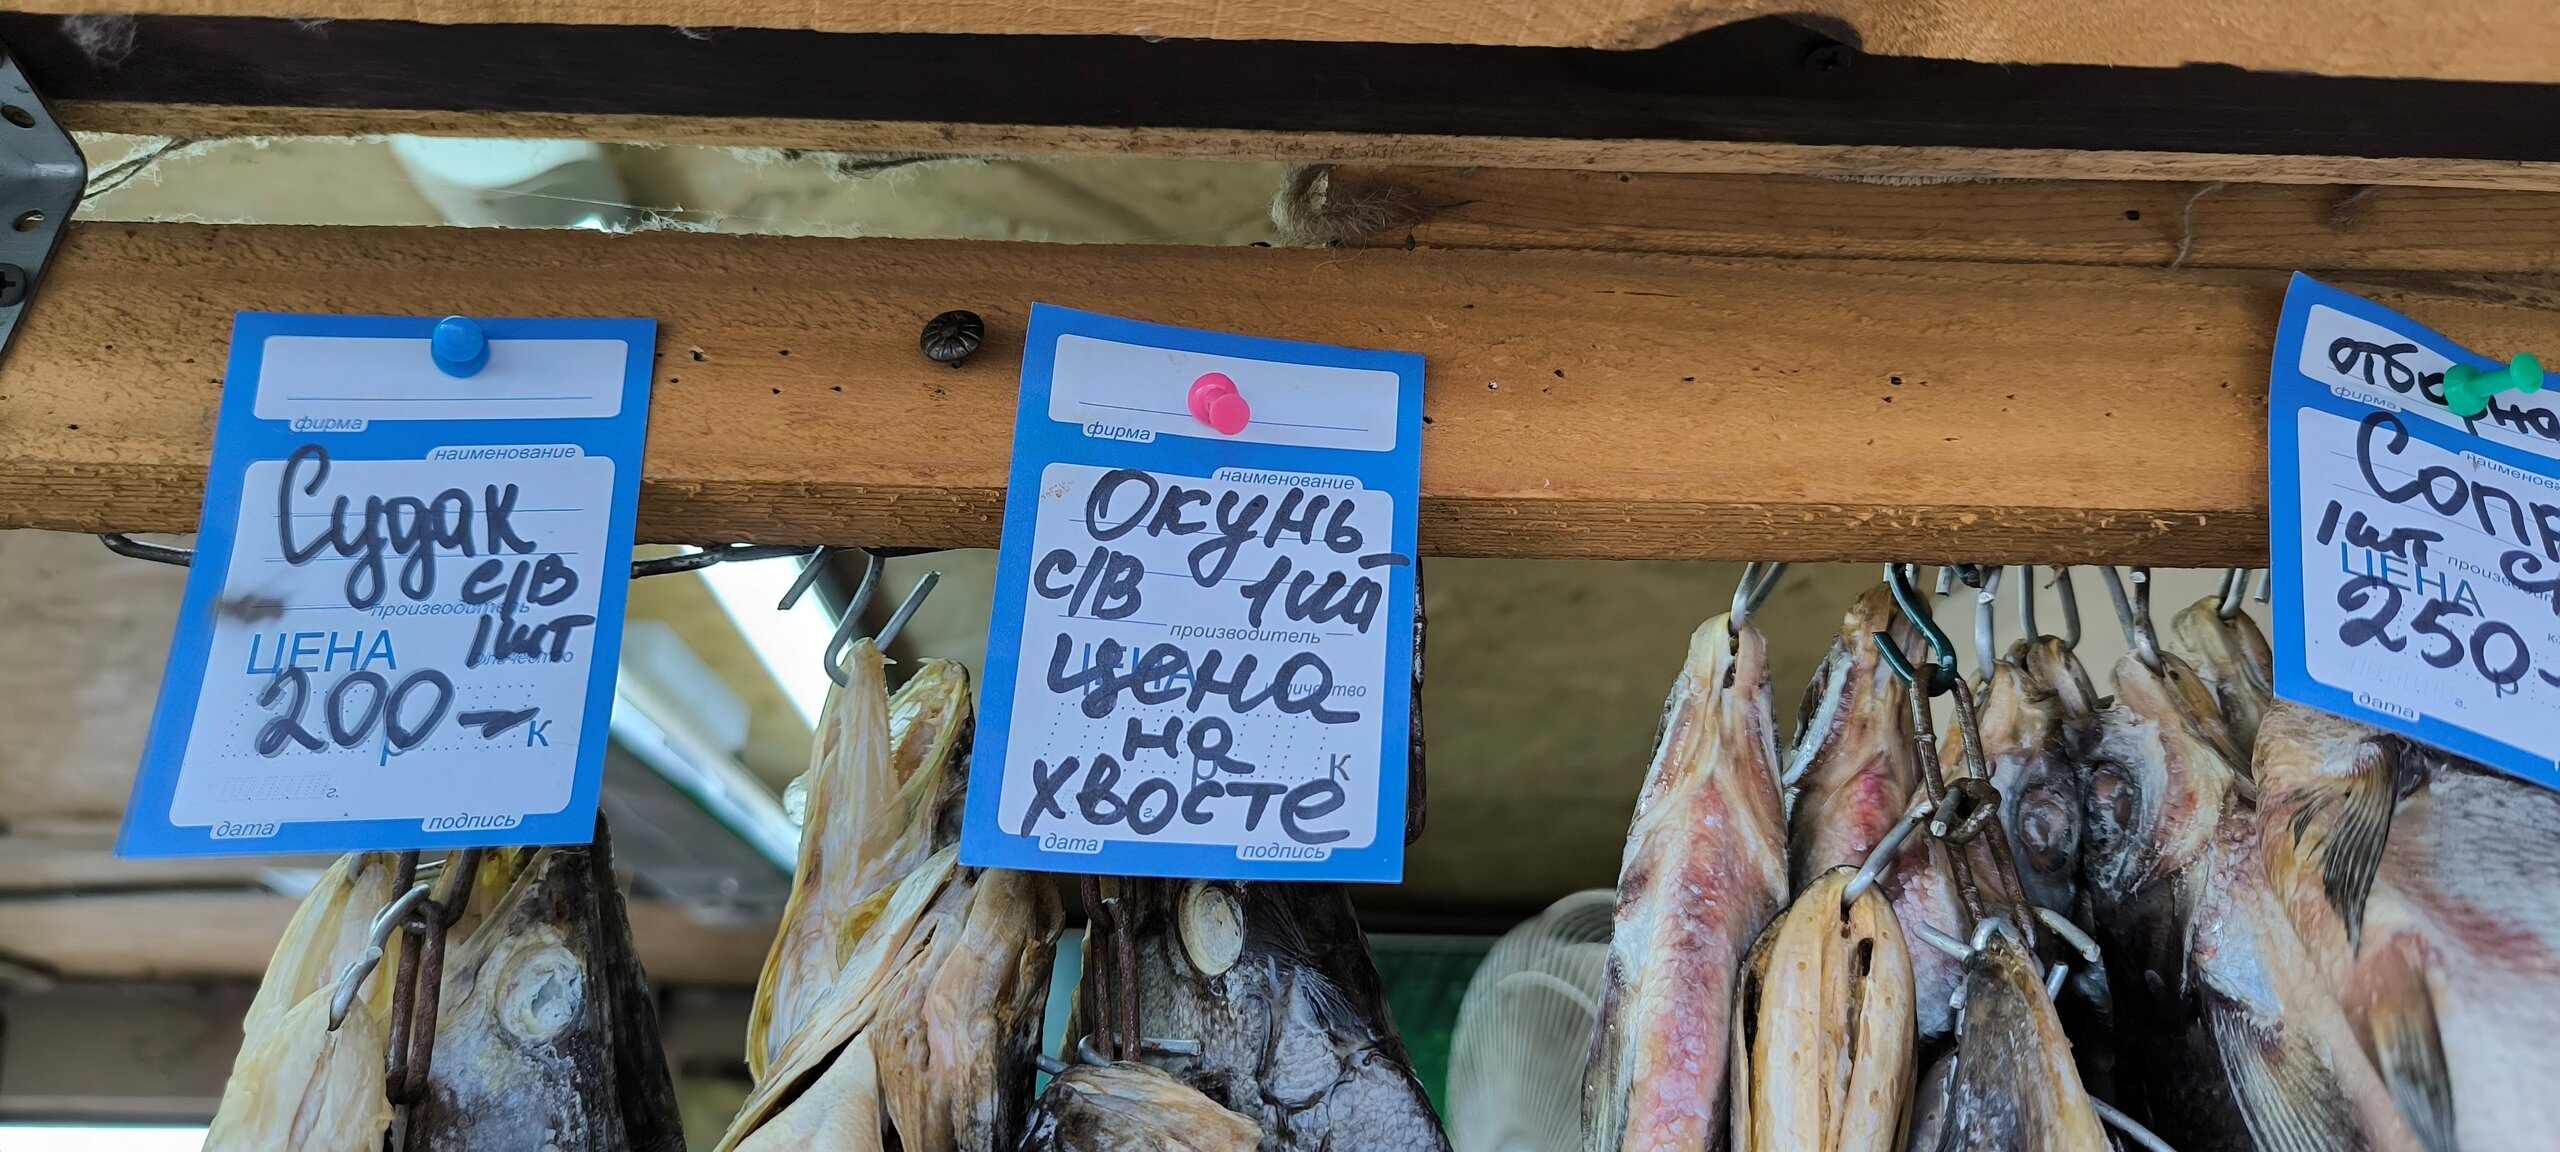 фирма
наименование
Судак
с/в
производитель
1шт
ЦЕНА
количество
200-
р к
г.
дата подпись
фирма
наименование
Окунь
с/в 1шт
производитель
цена
количество
на
р к
хвосте
г.
дата подпись
отборна
фирма
Сопр
наименов
1шт с/
произво
ЦЕНА
250-
р
г.
дата